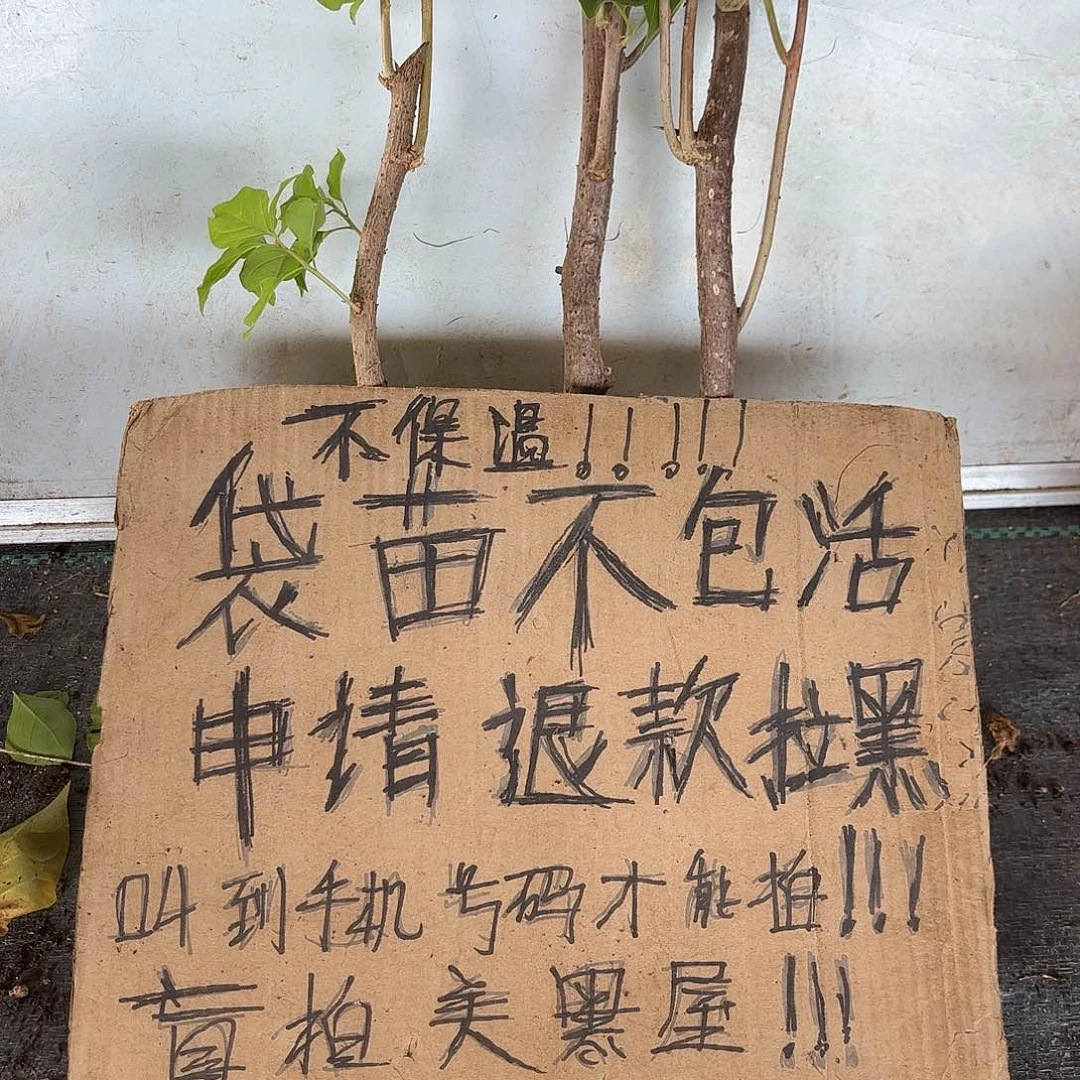 不保温!!!!!
袋苗不包活
申请退款拉黑
叫到手机号码才能拍!!!
盲拍关黑屋!!!